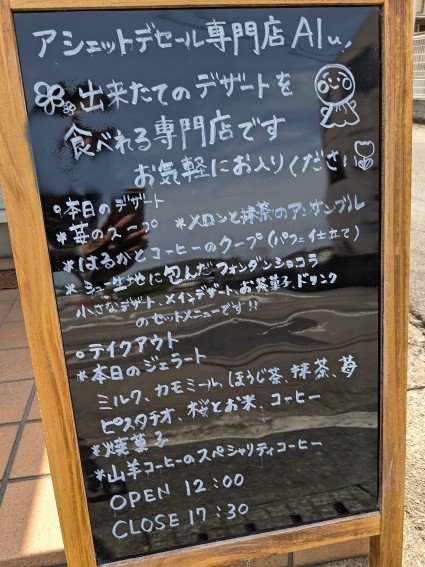 アシェットデセール専門店Alu,
出来たてのデザートを
食べれる専門店です
お気軽にお入りください
○本日のデザート
*苺のスープ *メロンと抹茶のアンサンブル
*はるかとコーヒーのクープ(パフェ仕立て)
*シュー生地に包んだフォンダンショコラ
小さなデザート、メインデザート、お茶菓子、ドリンク
のセットメニューです!!
○テイクアウト
*本日のジェラート
ミルク、カモミール、ほうじ茶、抹茶、苺
ピスタチオ、桜とお米、コーヒー
*焼菓子
*山羊コーヒーのスペシャリティコーヒー
OPEN 12:00
CLOSE 17:30